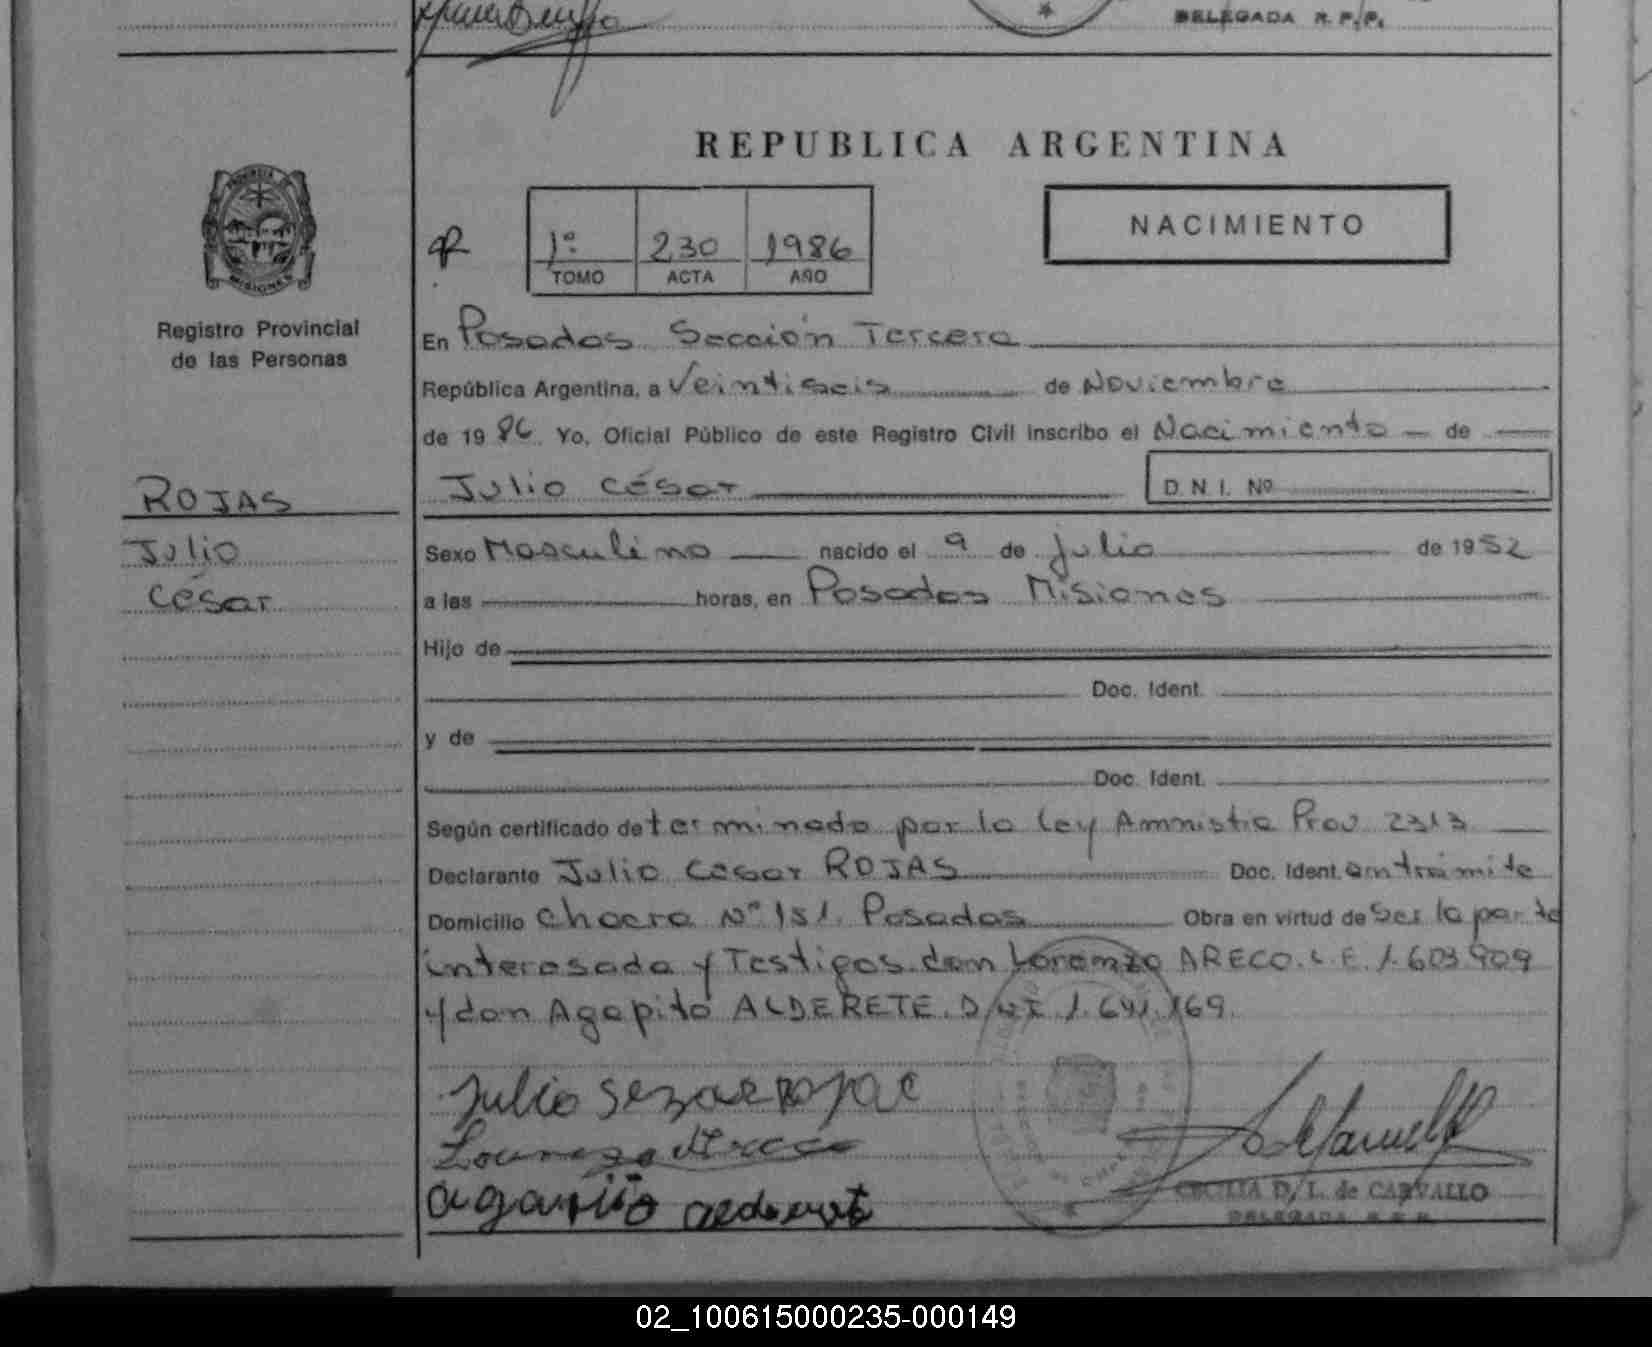 DELEGADA R.P.P.
REPUBLICA ARGENTINA
NACIMIENTO
1º 230 1986
TOMO ACTA AÑO
PROVINCIA DE MISIONES
Registro Provincial
de las Personas
En Posadas Sección Tercera
República Argentina, a Veintiseis de Noviembre
de 1986 Yo, Oficial Público de este Registro Civil inscribo el Nacimiento de
Julio César D.N.I. Nº
ROJAS
Julio
César
Sexo Masculino nacido el 9 de julio de 1952
a las horas, en Posadas Misiones
Hijo de
Doc. Ident.
y de
Doc. Ident.
Según certificado determinado por la Ley Amnistia Prov 2313
Declarante Julio Cesar ROJAS Doc. Ident. en tramite
Domicilio Chacra Nº 151. Posadas Obra en virtud de Ser la parte
interesada y Testigos don Lorenzo ARECO. L.E. 1.603.909
y don Agapito ALDERETE. D.N.I. 1.641.169.
Julio Sezar rojac
CECILIA D. L. de CARVALLO
DELEGADA R.P.P.
02_100615000235-000149